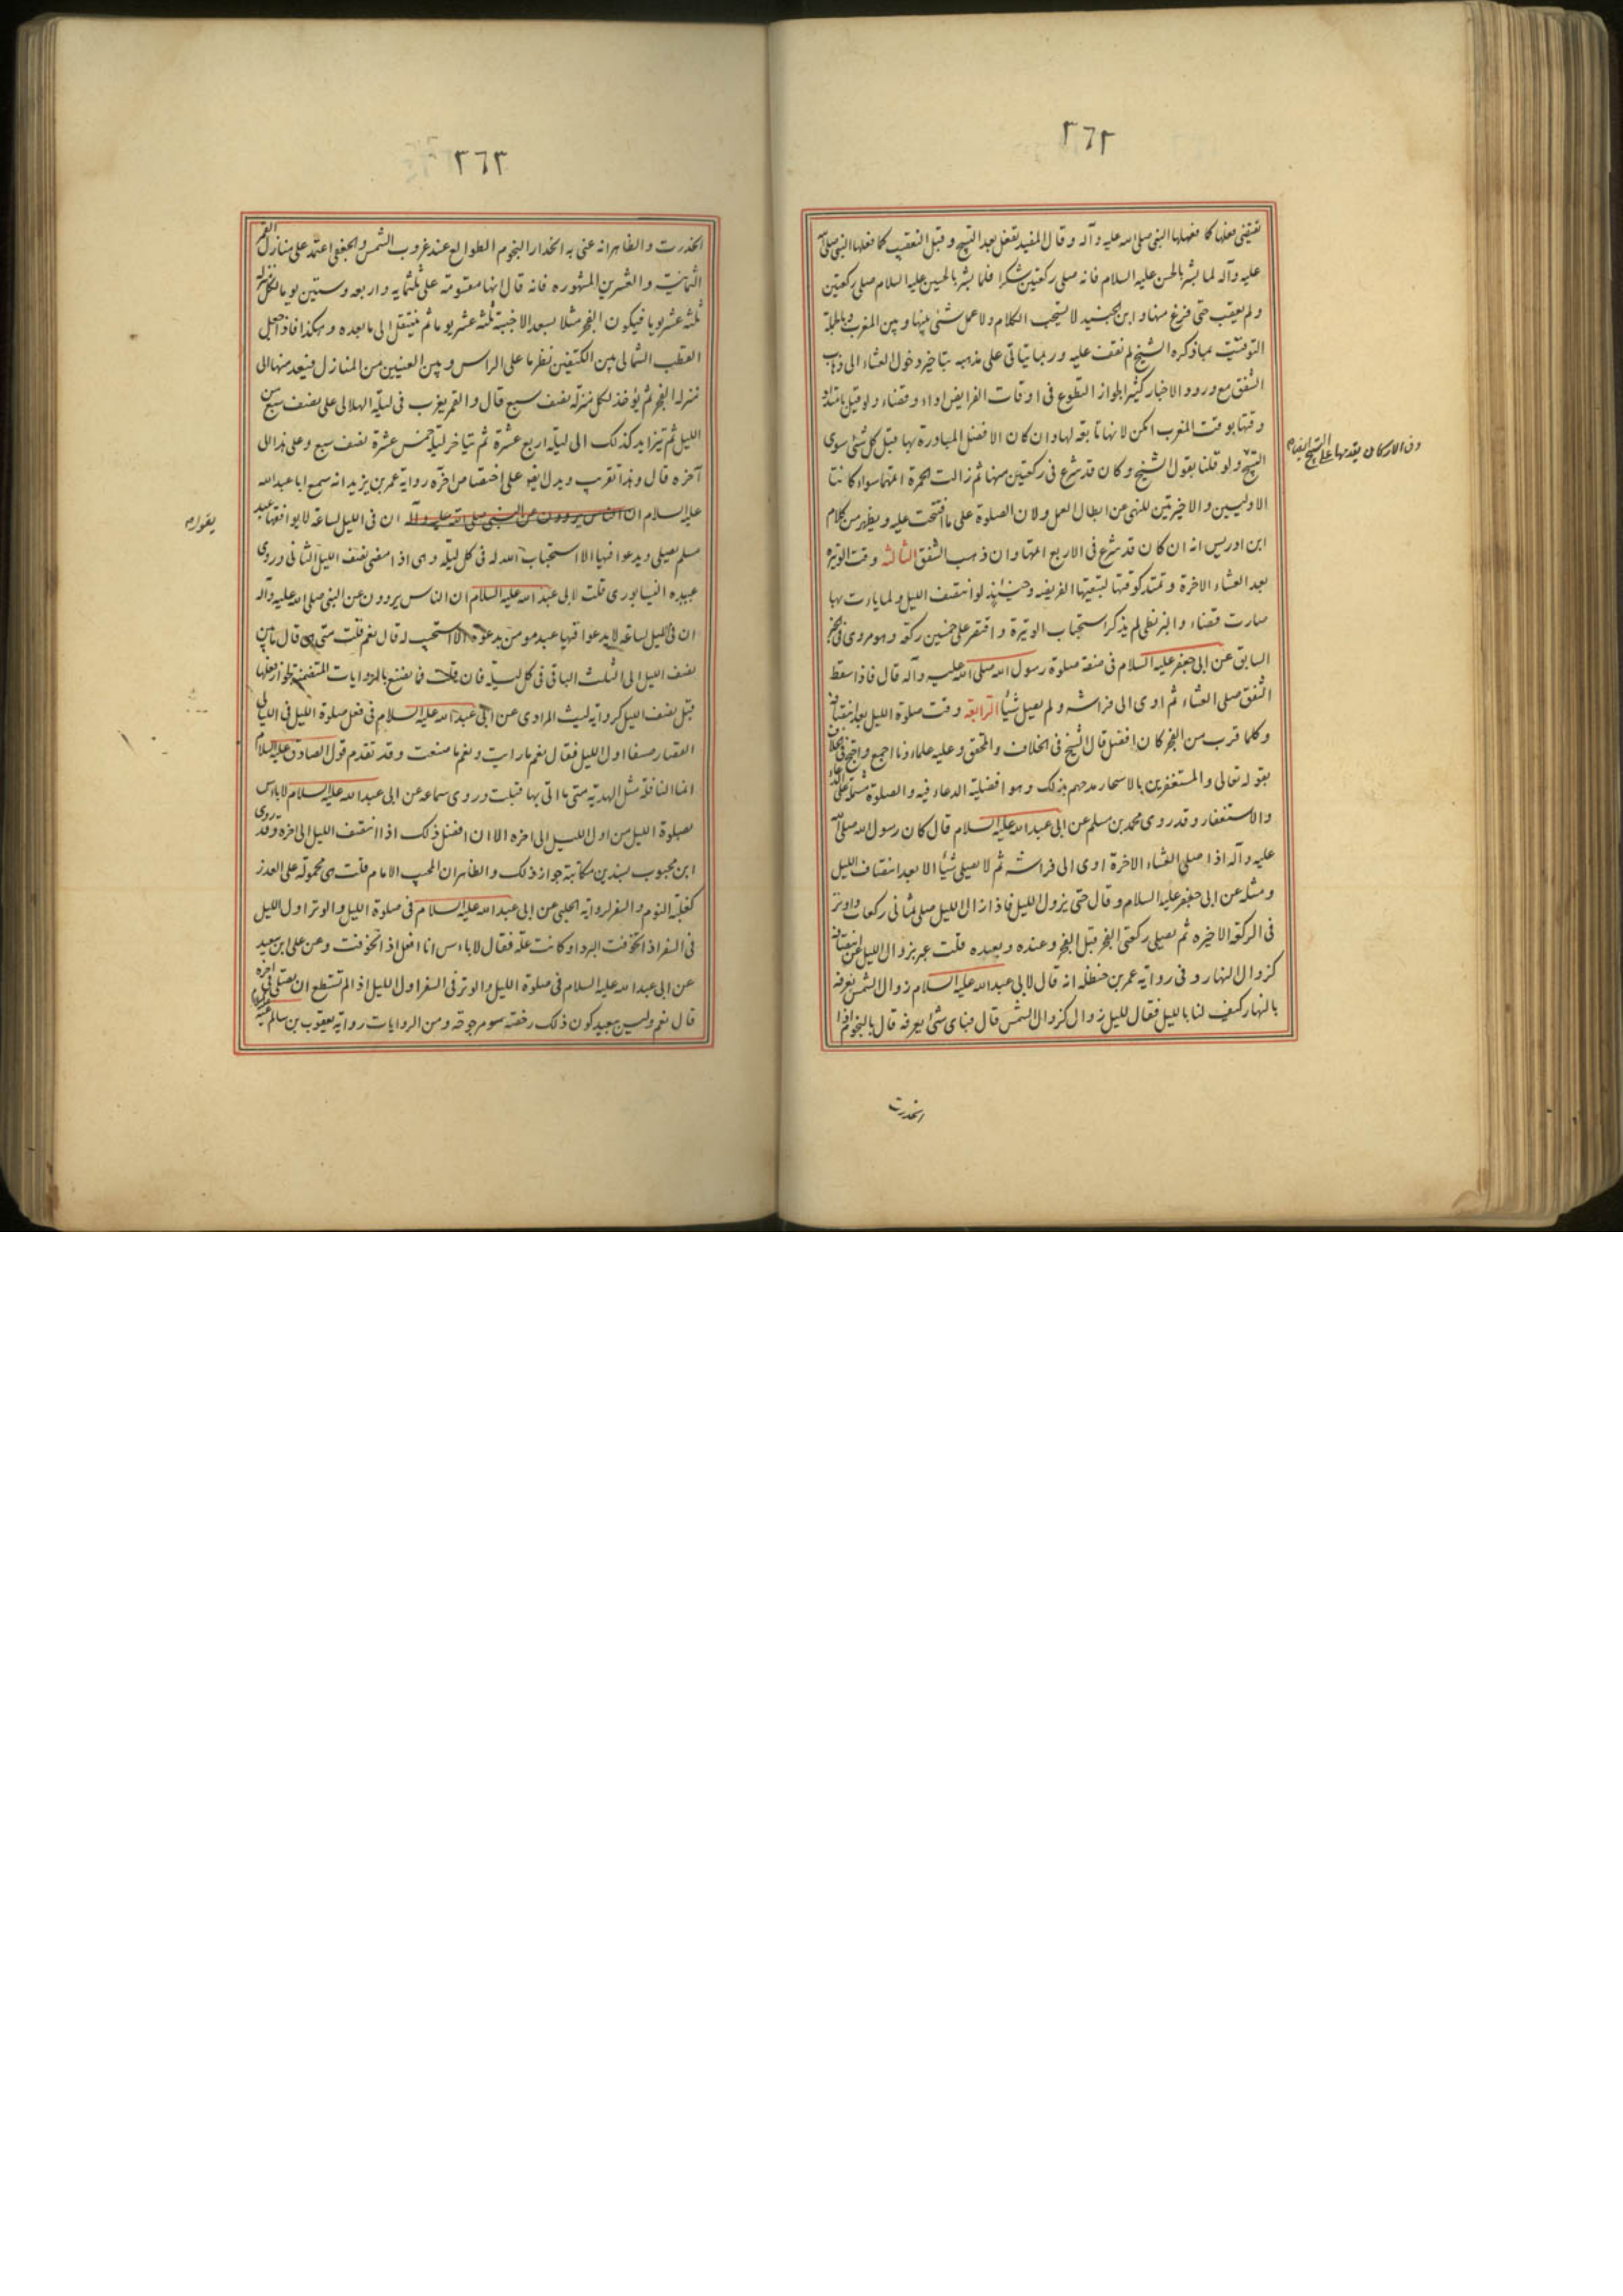 ٢٦٢
تقتضي فعلها كما فعلها النبي صلى الله عليه وآله وقال المفيد تفعل بعد التسبيح وقبل التعقيب كما فعلها النبي صلى الله
عليه وآله لما بشر بالحسن عليه السلام فانه صلى ركعتين شكرا فلما بشر بالحسين عليه السلام صلى ركعتين
ولم يعقب حتى فرغ منها وابن الجنيد لا يستحب الكلام ولا عمل شئ بينها وبين المغرب وبالجملة
التوقيت بما ذكره الشيخ لم نقف عليه وربما يتاتى على مذهبه بتاخير دخول العشاء الى ذهاب
الشفق مع ورود الاخبار كثيرا بجواز التطوع في اوقات الفرايض اداء وقضاء ولو قيل بامتداد
وقتها بوقت المغرب امكن لانها تابعة لها وان كان الافضل المبادرة بها قبل كل شئ سوى
التسبيح ولو قلنا بقول الشيخ وكان قد شرع في ركعتين منها ثم زالت الحمرة اتمها سواء كانتا
الاوليين والاخيرتين للنهي عن ابطال العمل ولان الصلوة على ما افتتحت عليه ويظهر من كلام
ابن ادريس انه ان كان قد شرع في الاربع اتمها وان ذهب الشفق الثالثه وقت الوتيره
بعد العشاء الاخرة وتمتد كوقتها لتبعيتها الفريضه وحينئذ لو انتصف الليل ولما يات بها
صارت قضاء والبزنطي لم يذكر استحباب الوتيرة واقتصر على خمسين ركعة وهو مروى في خبر
السابق عن ابى جعفر عليه السلام في صفة صلوة رسول الله صلى الله عليه وآله قال فاذا سقط
الشفق صلى العشاء ثم اوى الى فراشه ولم يصل شيأ الرابعة وقت صلوة الليل بعد انتصافه
وكلما قرب من الفجر كان افضل قال الشيخ في الخلاف والمحقق وعليه علماؤنا اجمع واحتج في الخلاف
بقوله تعالى والمستغفرين بالاسحار مدحهم بذلك وهو افضلية الدعاء فيه والصلوة مشتملة على الدعاء
والاستغفار وقد روى محمد بن مسلم عن ابى عبد الله عليه السلام قال كان رسول الله صلى الله
عليه وآله اذا صلى العشاء الاخرة اوى الى فراشه ثم لا يصلى شيأ الا بعد انتصاف الليل
ومثله عن ابى جعفر عليه السلام وقال حتى يزول الليل فاذا زال الليل صلى ثمانى ركعات واوتر
في الركعة الاخيره ثم يصلى ركعتى الفجر قبل الفجر وعنده وبعيده قلت عبر بزوال الليل عن انتصافه
كزوال النهار وفى رواية عمر بن حنظله انه قال لابى عبد الله عليه السلام زوال الشمس نعرفه
بالنهار كيف لنا بالليل فقال لليل زوال كزوال الشمس قال فباى شئ نعرفه قال بالنجوم اذا
انحدرت
٢٦٣
انحدرت والظاهر انه عنى به انحدار النجوم الطوالع عند غروب الشمس والجعفى اعتمد على منازل القمر
الثمانية والعشرين المشهوره فانه قال انها مقسومة على ثلثمايه واربعه وستين يوما لكل منزلة
ثلثه عشر يوما فيكون الفجر مثلا بسعد الاخبية ثلثه عشر يوما ثم ينتقل الى ما بعده وهكذا فاذا جعل
القطب الشمالى بين الكتفين نظر ما على الراس وبين العينين من المنازل فيعد منها الى
منزله الفجر ثم يؤخذ لكل منزله نصف سبع قال والقمر يغرب في ليلة الهلالى على نصف سبع من
الليل ثم يتزايد كذلك الى ليلة اربع عشرة ثم يتاخر ليلة خمس عشرة نصف سبع وعلى هذا الى
آخره قال وهذا تقريب ويدل ايضا على اختصاص آخره رواية عمر بن يزيد انه سمع ابا عبد الله
عليه السلام يقول ان الناس يروون عن النبى صلى الله عليه وآله ان في الليل لساعة لا يوافقها عبد
مسلم يصلى ويدعوا فيها الا استجاب الله له في كل ليلة وهى اذا مضى نصف الليل الثانى وروى
عبيده النيسابورى قلت لابى عبد الله عليه السلام ان الناس يروون عن النبى صلى الله عليه وآله
ان في الليل لساعة لا يدعوا فيها عبد مومن بدعوة الا استجيب له قال نعم قلت متى هى قال ما بين
نصف الليل الى الثلث الباقى في كل ليلة فان قلت فما تصنع بالروايات المتضمنة لجواز فعلها
قبل نصف الليل كرواية ليث المرادى عن ابى عبد الله عليه السلام في فعل صلوة الليل في الليالى
القصار صيفا اول الليل فقال نعم ما رايت ونعم ما صنعت وقد تقدم قول الصادق عليه السلام
انما النافلة مثل الهدية متى ما اتى بها قبلت وروى سماعه عن ابى عبد الله عليه السلام لا باس
بصلوة الليل من اول الليل الى اخره الا ان افضل ذلك اذا انتصف الليل الى اخره وقد روى
ابن محبوب بسندين مكاتبة جواز ذلك والظاهر ان المجيب الامام قلت هى محمولة على العذر
كغلبة النوم والسفر لرواية الحلبى عن ابى عبد الله عليه السلام في صلوة الليل والوتر اول الليل
في السفر اذا تخوفت البرد او كانت علة فقال لا باس انا افعل اذا تخوفت وعن على ابن سعيد
عن ابى عبد الله عليه السلام في صلوة الليل والوتر في السفر اول الليل اذا لم تستطع ان يصلى في آخره
قال نعم وليس ببعيد كون ذلك رخصة مرجوحة ومن الروايات رواية يعقوب بن سالم عنه
يقول